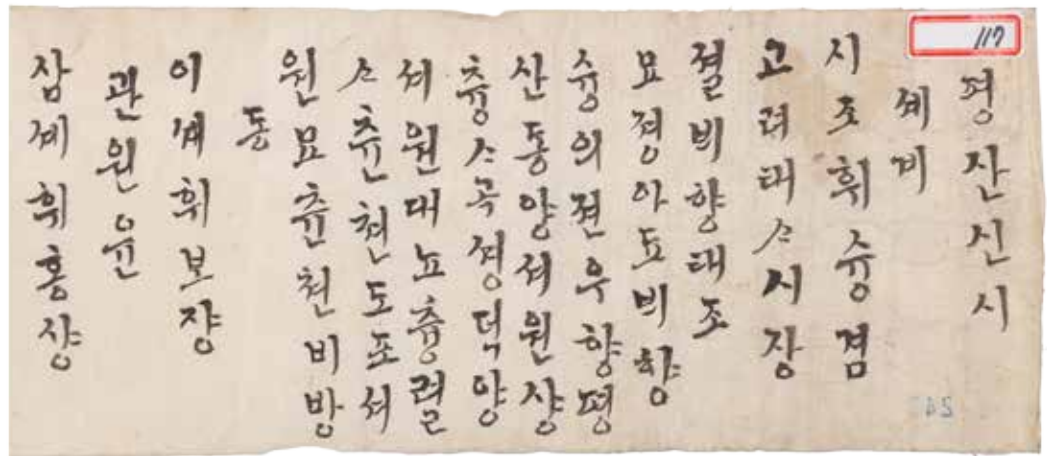 117
평산신시
셰계
시조휘슝겸
고려태ᄉᆞ시장
졀ᄇᆡ향태조
묘졍아됴ᄇᆡ향
슝의젼우향평
산동양셔원샹
츙ᄉᆞ곡셩덕양
셔원대뇨츙렬
ᄉᆞ츈쳔도포셔
원묘츈쳔비방
동
이셰휘보쟝
관원윤
삼셰휘홍샹